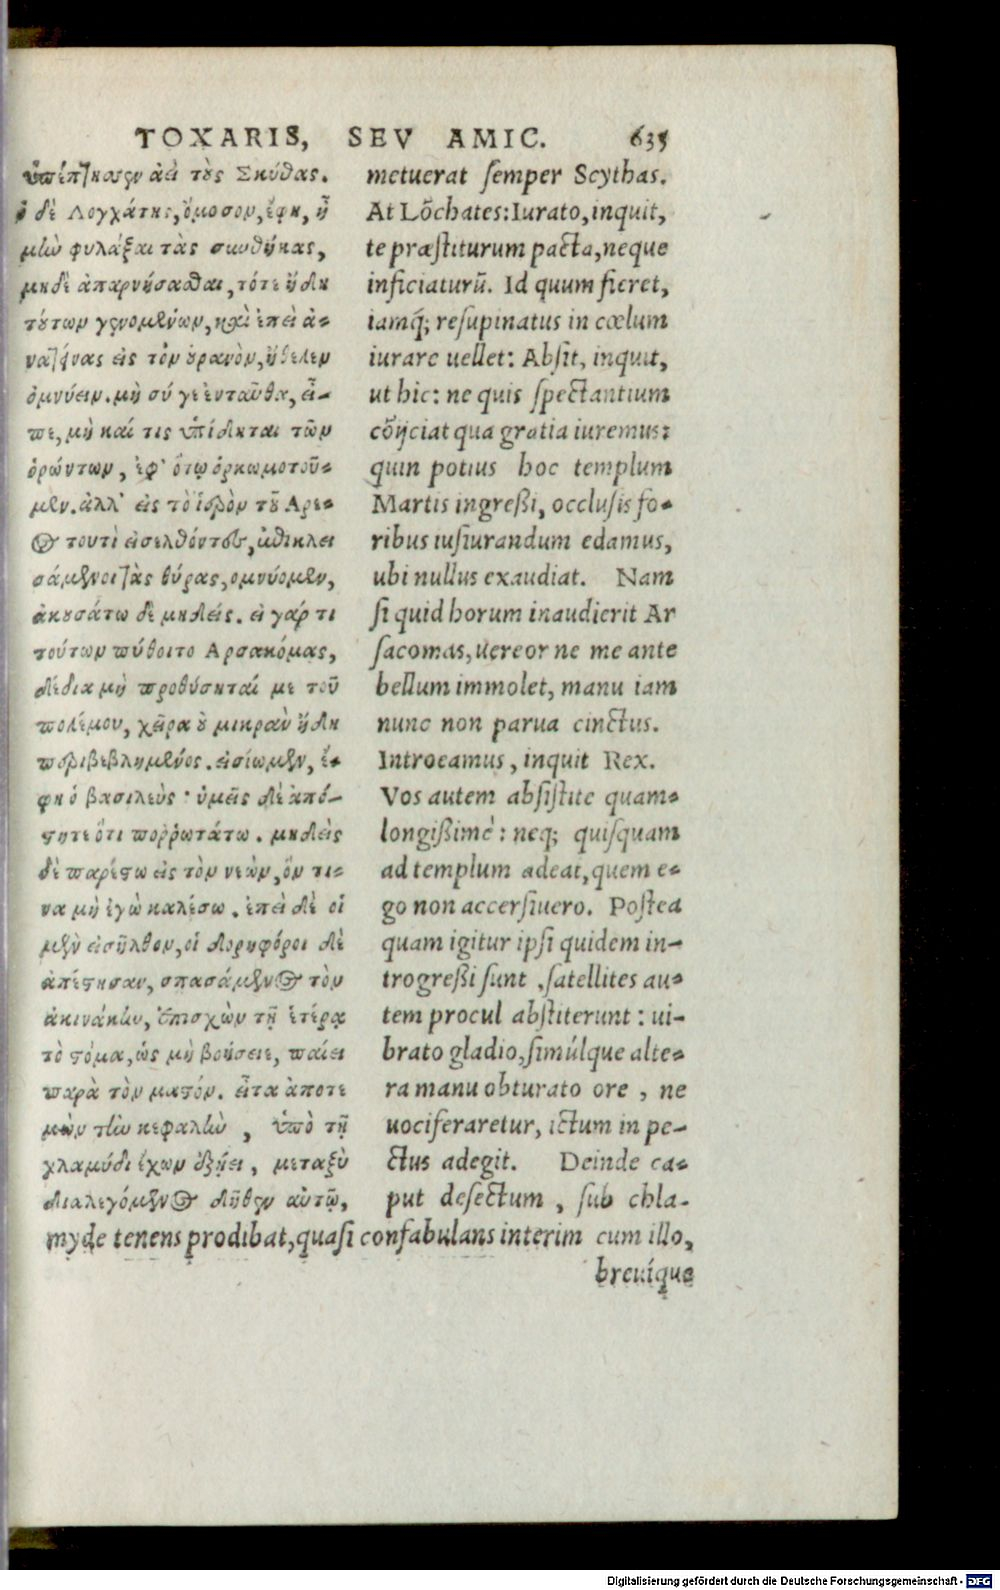 TOXARIS, SEV AMIC. 635
ὑπέπτησσεν ἀεὶ τοὺς Σκύθας.
ὁ δὲ Λογχάτης, ὄμοσον, ἔφη, ἦ
μὴν φυλάξαι τὰς συνθήκας,
μηδὲ ἀπαρνήσασθαι, τότε ἤδη
τούτων γενομένων, καὶ ἐπεὶ ἀ-
νατείνας εἰς τὸν οὐρανὸν, ἤθελεν
ὀμνύειν. μὴ σύ γε ἐνταῦθα, εἶ-
πε, μὴ καί τις ὑπίδηται τῶν
ὁρώντων, ἐφ' ὅτῳ ὁρκωμοτοῦ-
μεν. ἀλλ' εἰς τὸ ἱερὸν τοῦ Αρε-
ος τουτὶ εἰσελθόντες, ἀποκλει
σάμενοι τὰς θύρας, ομνύομεν,
ἀκουσάτω δὲ μηδείς. εἰ γάρ τι
τούτων πύθοιτο Αρσακόμας,
δέδια μὴ προθύσηταί με τοῦ
πολέμου, χεῖρα οὐ μικρὰν ἤδη
περιβεβλημένος. εἰσίωμεν, ἔ-
φη ὁ βασιλεὺς· ὑμεῖς δὲ ἀπό-
στητε ὅτι πορῤωτάτω. μηδεὶς
δὲ παρέστω εἰς τὸν νεὼν, ὅν τι-
να μὴ ἐγὼ καλέσω. ἐπεὶ δὲ οἱ
μὲν εἰσῆλθον, οἱ δορυφόροι δὲ
ἀπέστησαν, σπασάμενος τὸν
ἀκινάκην, ἐπισχὼν τῇ ἑτέρᾳ
τὸ στόμα, ὡς μὴ βοήσειε, παίει
παρὰ τὸν μαστόν. εἶτα ἀποτε
μὼν τὴν κεφαλὴν, ὑπὸ τῇ
χλαμύδι ἔχων ἐξῄει, μεταξὺ
διαλεγόμενος δῆθεν αὐτῷ,
metuerat semper Scythas.
At Lōchates: Iurato, inquit,
te præstiturum pacta, neque
inficiaturū. Id quum fieret,
iamq́; resupinatus in cœlum
iurare uellet: Absit, inquit,
ut hic: ne quis spectantium
cōijciat qua gratia iuremus:
quin potius hoc templum
Martis ingreßi, occlusis fo-
ribus iusiurandum edamus,
ubi nullus exaudiat. Nam
si quid horum inaudierit Ar
sacomas, uereor ne me ante
bellum immolet, manu iam
nunc non parua cinctus.
Introeamus, inquit Rex.
Vos autem absistite quam-
longißimè: neq; quisquam
ad templum adeat, quem e-
go non accersiuero. Postea
quam igitur ipsi quidem in-
trogreßi sunt, satellites au-
tem procul abstiterunt: ui-
brato gladio, simúlque alte-
ra manu obturato ore, ne
uociferaretur, ictum in pe-
ctus adegit. Deinde ca-
put desectum, sub chla-
myde tenens prodibat, quasi confabulans interim cum illo,
breuíque
Digitalisierung gefördert durch die Deutsche Forschungsgemeinschaft - DFG